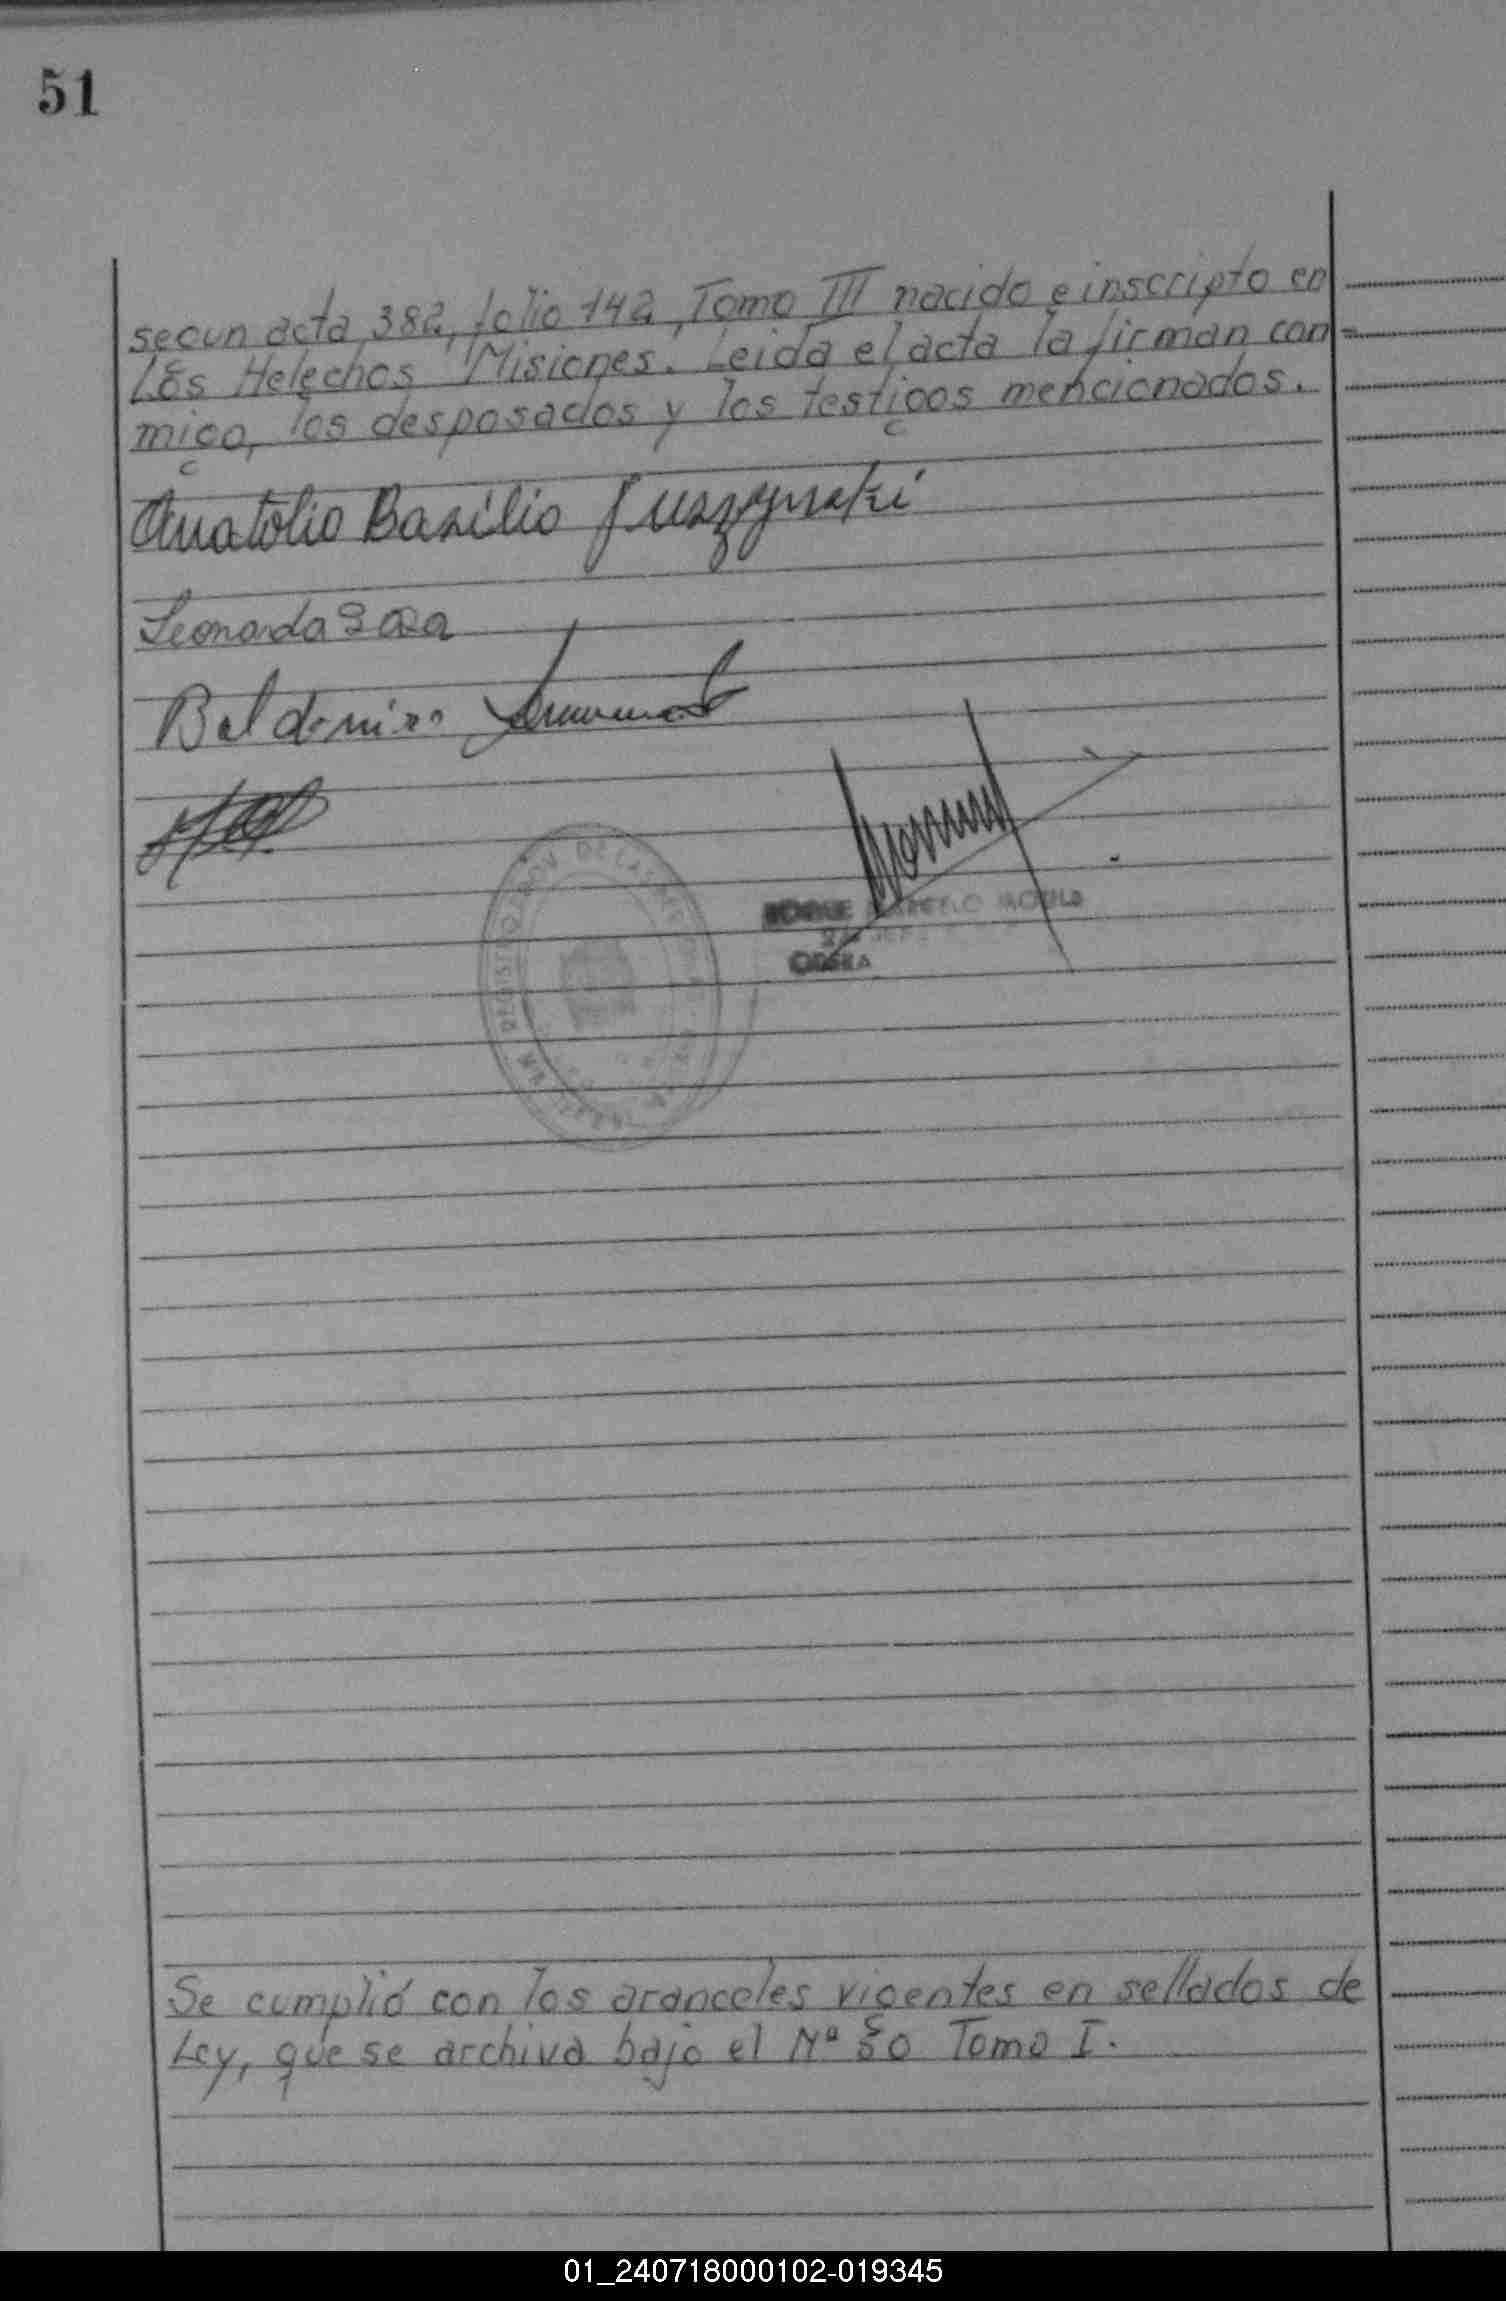 51
según acta 382, folio 142, Tomo III nacido e inscripto en
Los Helechos Misiones. Leida el acta la firman con-
migo, los desposados y los testigos mencionados.
Anatolio Basilio Juszynski
Leonarda
Baldomiro
REGISTRO PROV. DE LAS PERSONAS
MARCELO
OBERA
Se cumplió con los aranceles vigentes en sellados de
Ley, que se archiva bajo el Nº 50 Tomo I.
01_240718000102-019345